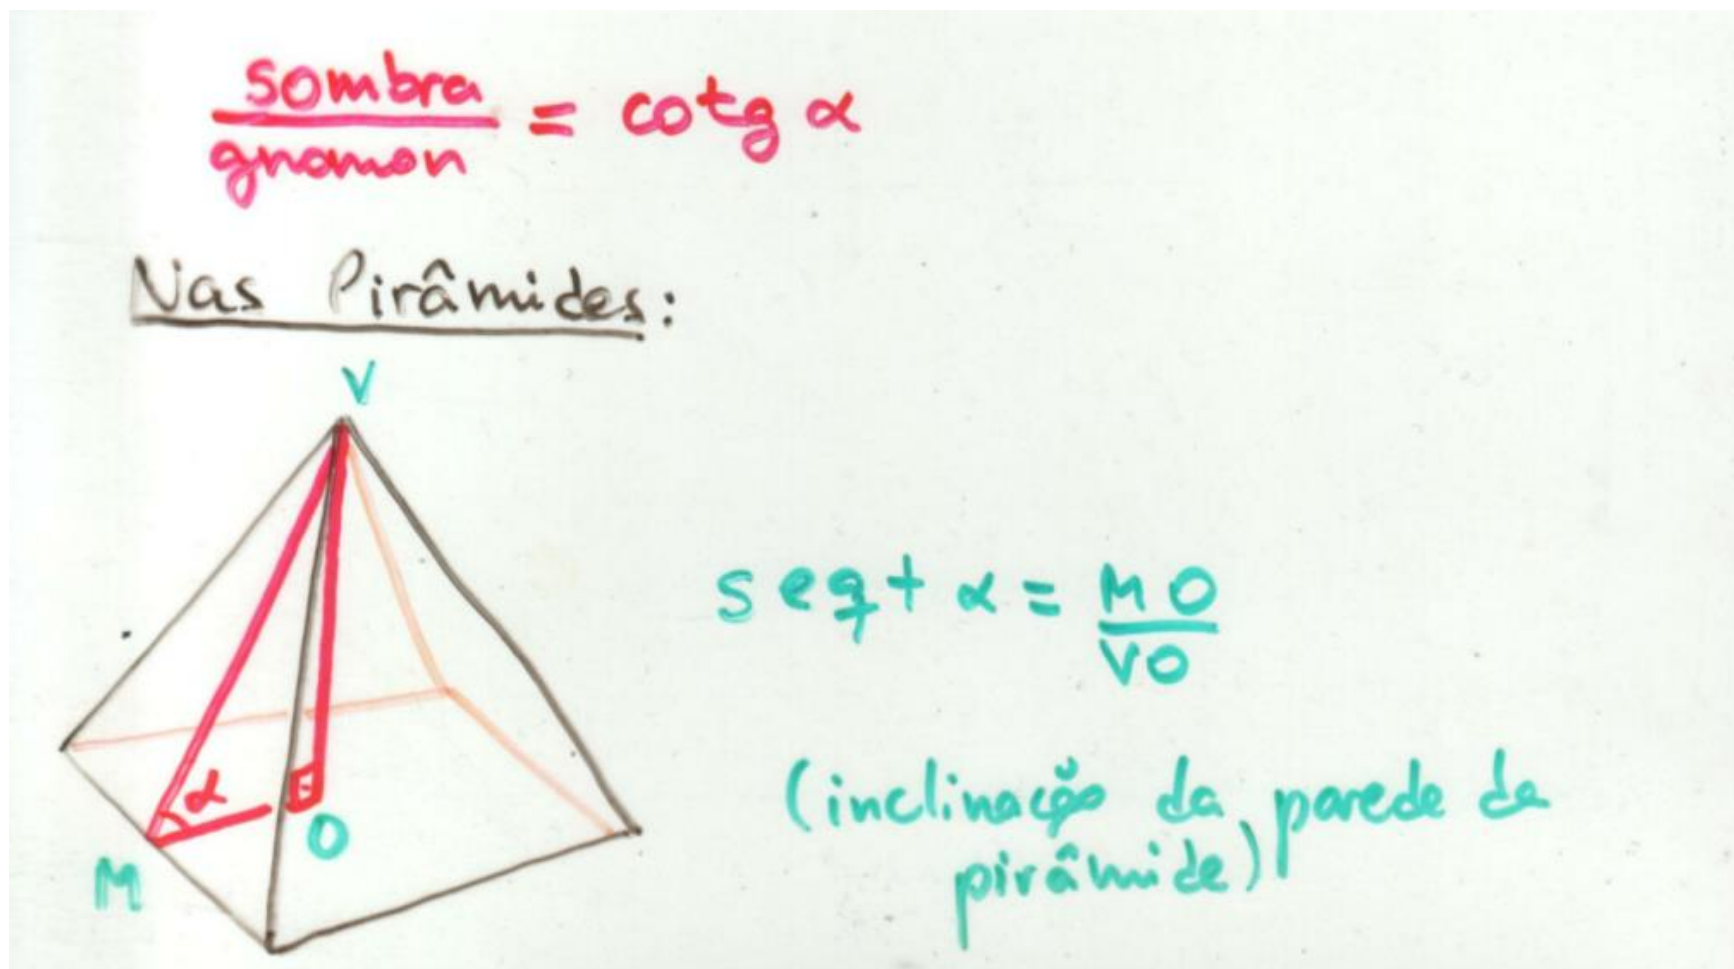 sombra
gnomon = cotg α
Nas Pirâmides:
V
seqt α = MO
VO
α
O
M
(inclinação da parede da
pirâmide)